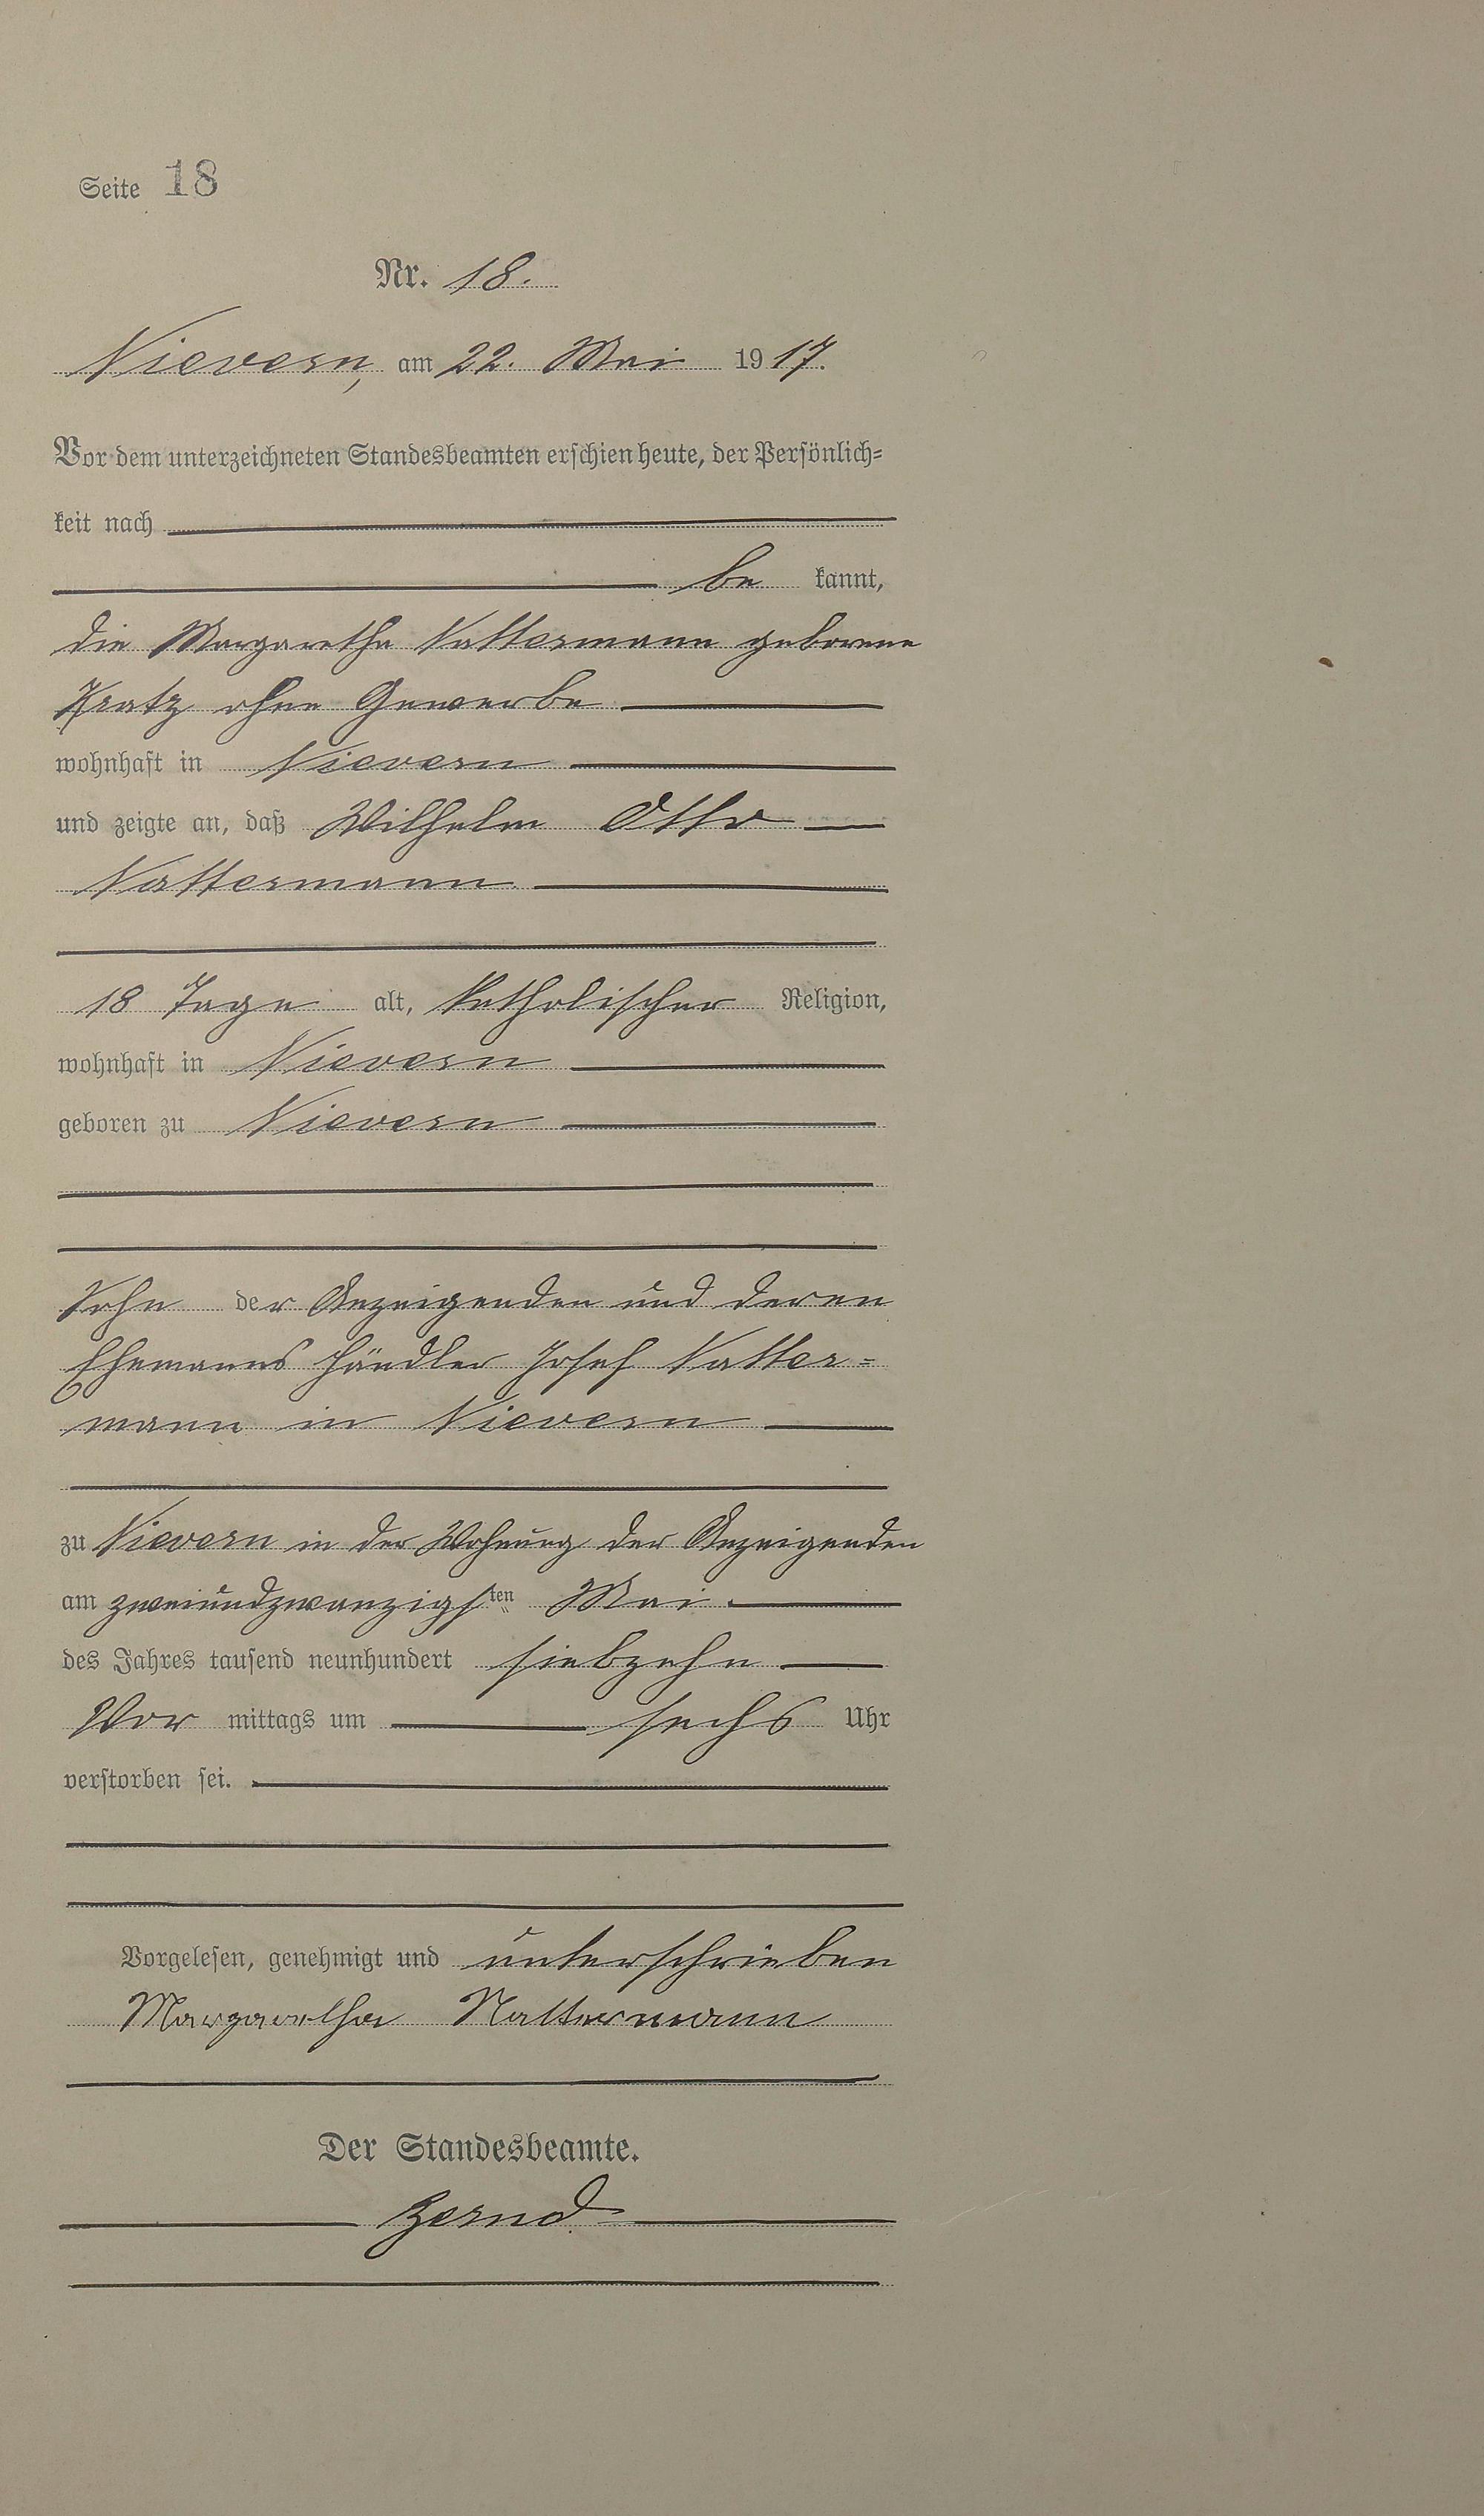 Seite 18
Nr. 18.
Nievern, am 22. Mai 1917.
Vor dem unterzeichneten Standesbeamten erschien heute, der Persönlich-
keit nach
be kannt,
die Margaretha Nattermann geborene
Kratz ohne Gewerbe
wohnhaft in Nievern
und zeigte an, daß Wilhelm Otto
Nattermann
18 Tage alt, katholischer Religion,
wohnhaft in Nievern
geboren zu Nievern
Sohn der Anzeigenden und deren
Ehemanns Händler Josef Natter-
mann in Nievern
zu Nievern in der Wohnung der Anzeigenden
am zweiundzwanzigsten Mai
des Jahres tausend neunhundert siebzehn
Vor mittags um sechs Uhr
verstorben sei.
Vorgelesen, genehmigt und unterschrieben
Margaretha Nattermann
Der Standesbeamte.